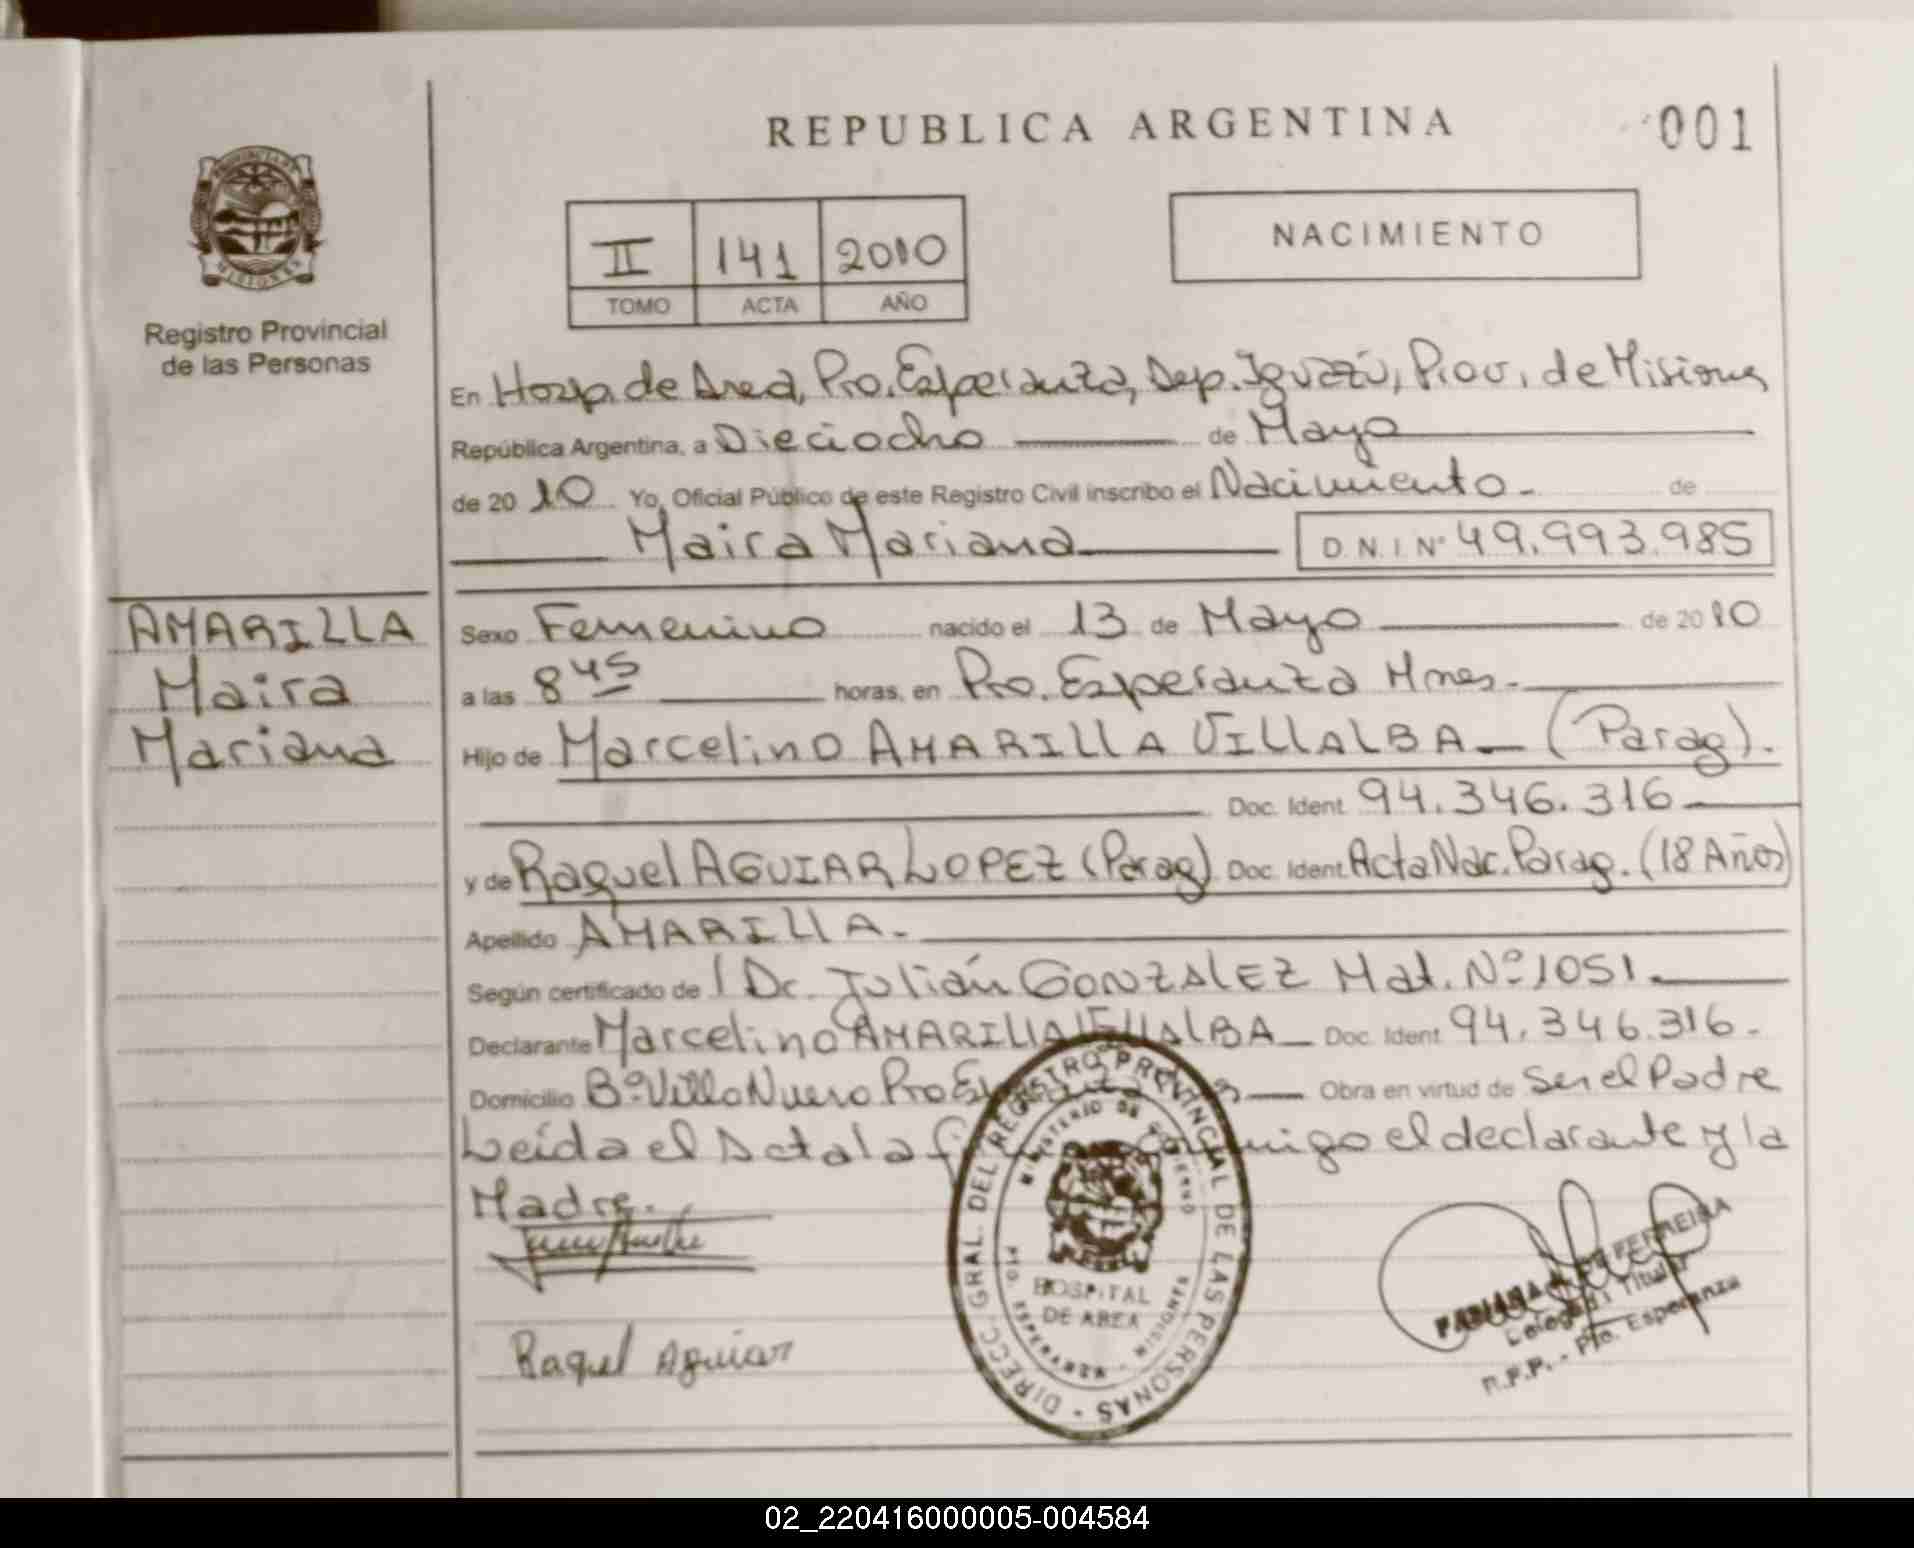 REPUBLICA ARGENTINA
001
PROVINCIA DE
MISIONES
Registro Provincial
de las Personas
II 141 2010
TOMO ACTA AÑO
NACIMIENTO
En Hosp. de Area, Pto. Esperanza, Dep. Iguazú, Prov. de Misiones
República Argentina, a Dieciocho de Mayo
de 20 10 Yo, Oficial Público de este Registro Civil inscribo el Nacimiento - de
Maira Mariana D.N.I Nº 49.993.985
AMARILLA
Maira
Mariana
Sexo Femenino nacido el 13 de Mayo de 20 10
a las 8 45 horas, en Pto. Esperanza Mnes.-
Hijo de Marcelino AMARILLA VILLALBA - (Parag).
Doc. Ident. 94.346.316
y de Raquel AGUIAR LOPEZ (Parag) Doc. Ident. Acta Nac. Parag. (18 Años)
Apellido AMARILLA.-
Según certificado de l Dr. Julián GONZALEZ Mat. Nº 1051.
Declarante Marcelino AMARILLA VILLALBA - Doc. Ident. 94.346.316.-
Domicilio Bº Villa Nueva Pto Obra en virtud de Ser el Padre
Leída el Acta la el declarante y la
Madre.-
Raquel Aguiar
DIRECC. GRAL. DEL REGISTRO PROVINCIAL DE LAS PERSONAS -
MINISTERIO DE GOBIERNO
HOSPITAL
DE AREA
PTO. ESPERANZA - MISIONES
FERREIRA
Delegada Titular
R.P.P. - Pto. Esperanza
02_220416000005-004584